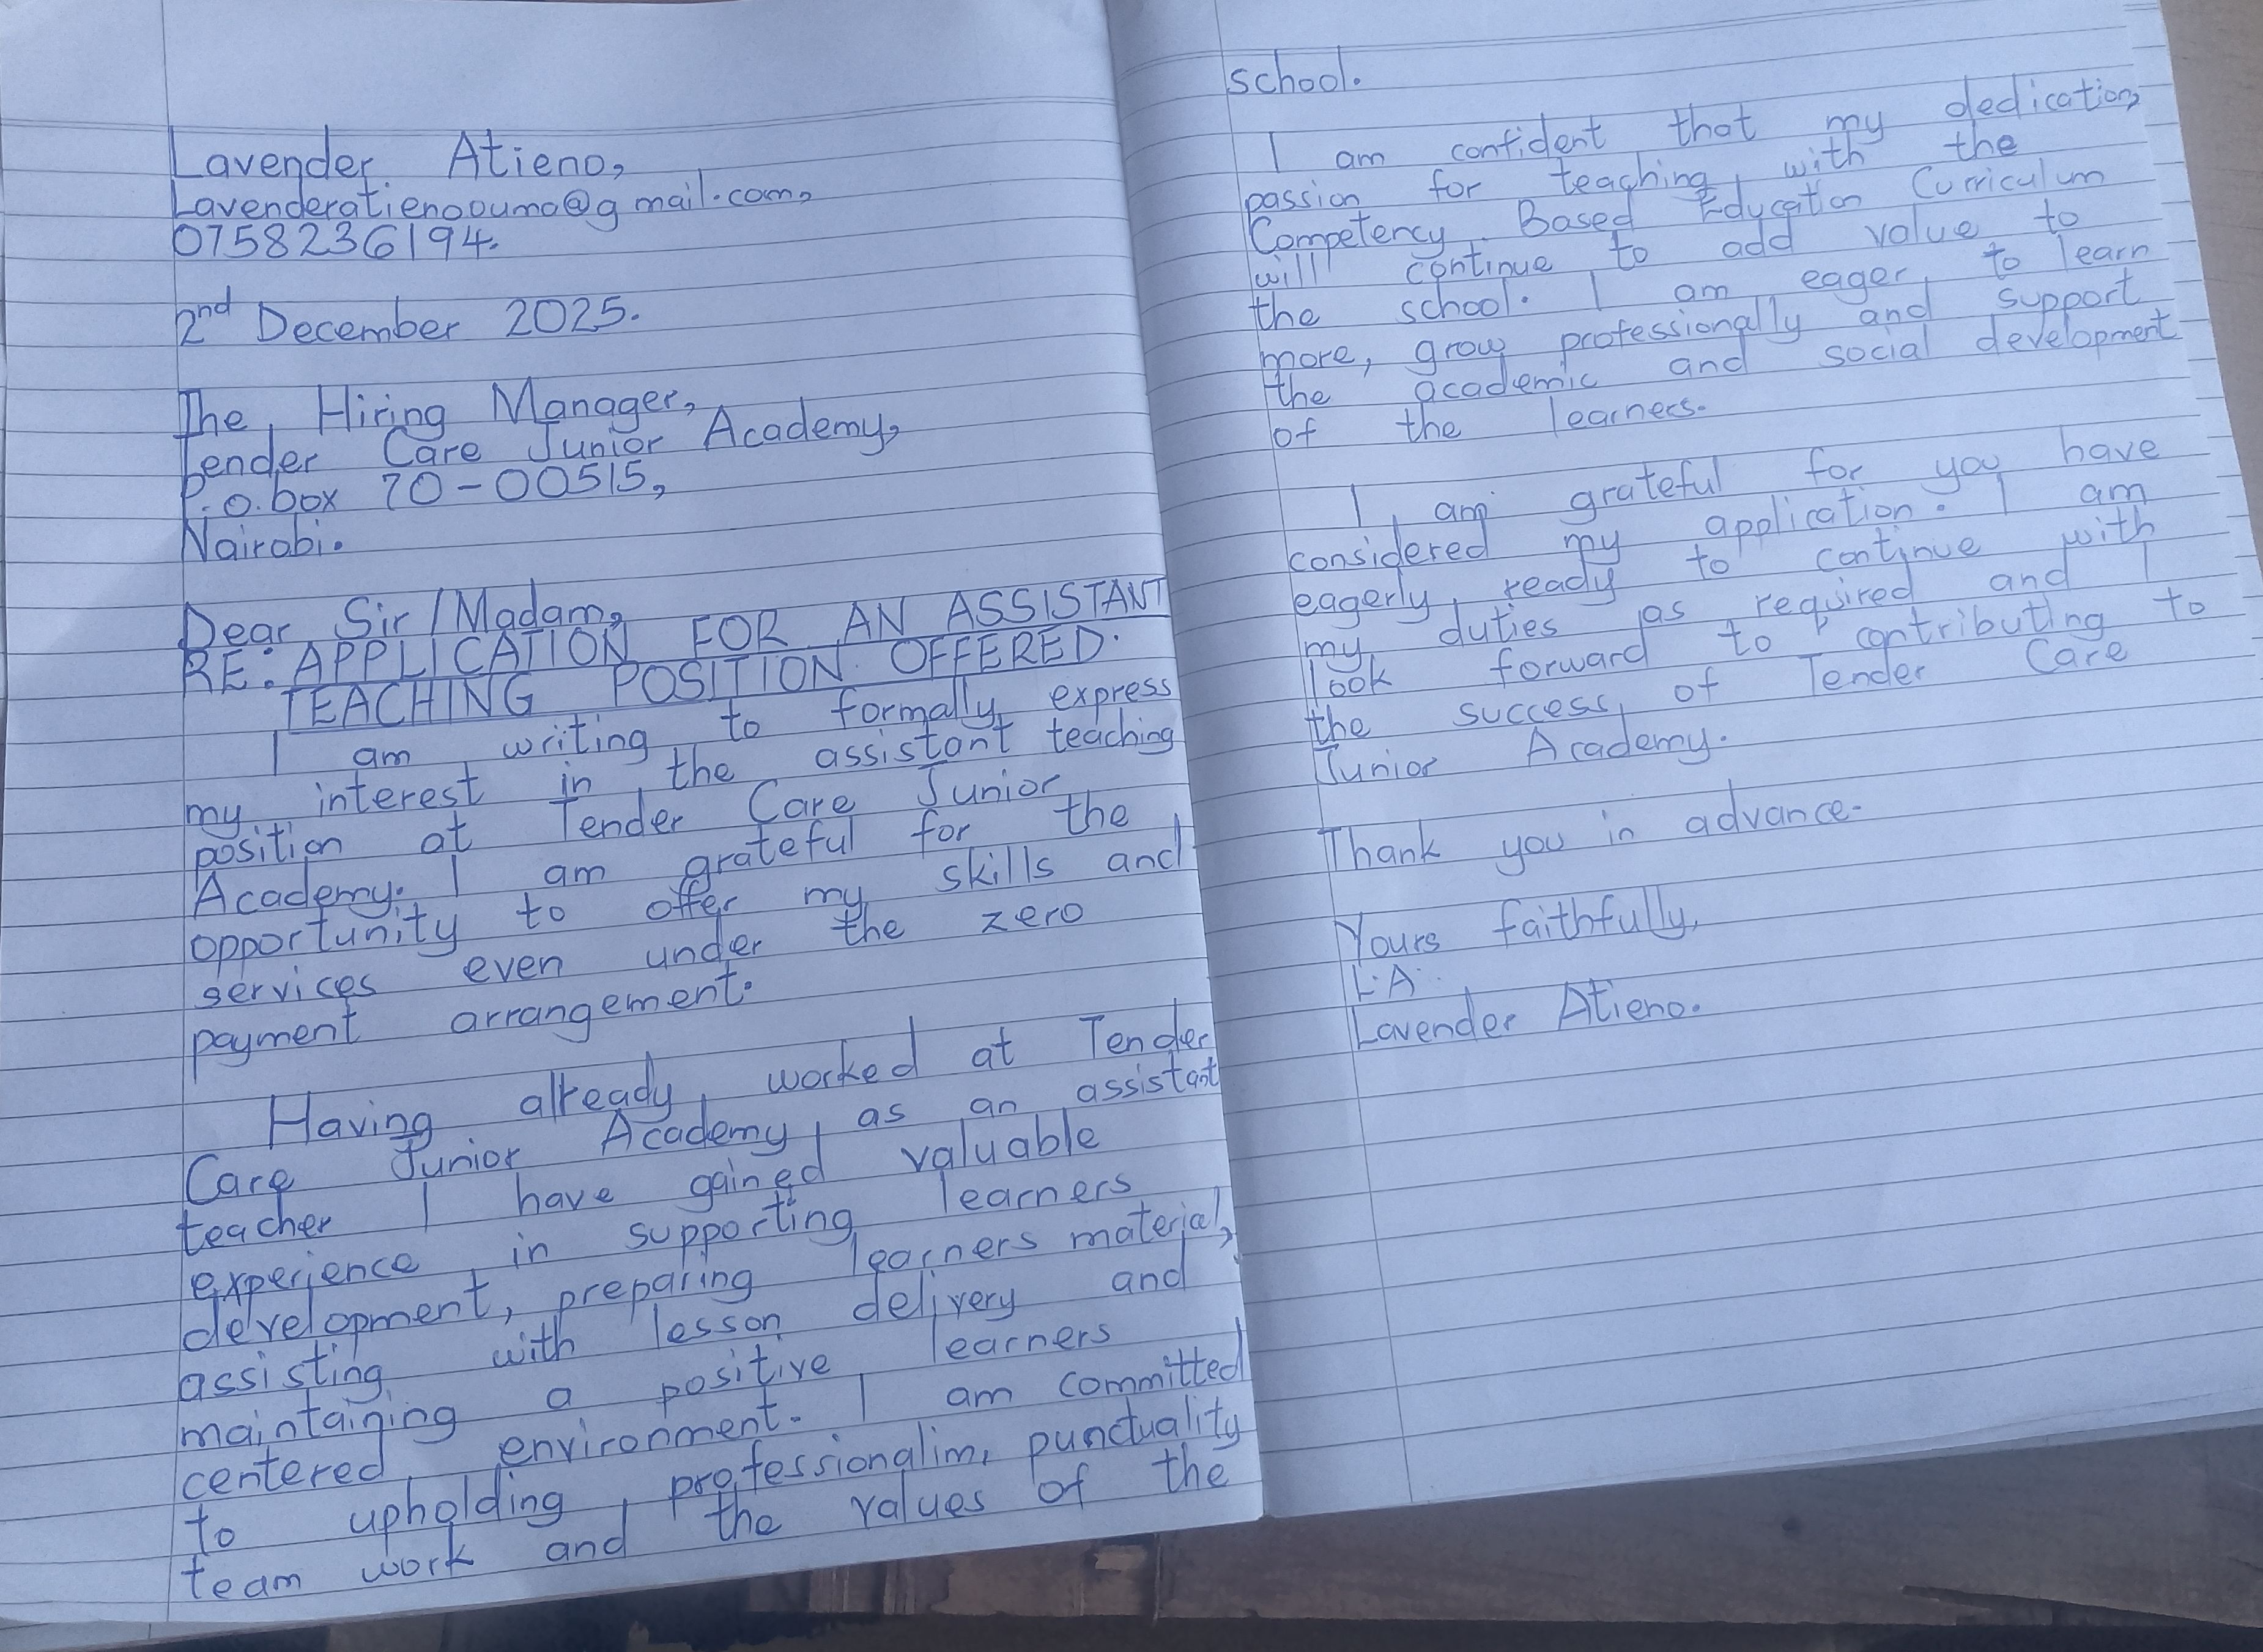 Lavender Atieno,
Lavenderatienoouma@gmail.com,
0758236194.
2nd December 2025.
The Hiring Manager,
Tender Care Junior Academy,
P.o.box 70-00515,
Nairobi.
Dear Sir/Madam,
RE: APPLICATION FOR AN ASSISTANT
TEACHING POSITION OFFERED.
I am writing to formally express
my interest in the assistant teaching
position at Tender Care Junior
Academy. I am grateful for the
opportunity to offer my skills and
services even under the zero
payment arrangement.
Having already worked at Tender
Care Junior Academy as an assistant
teacher I have gained valuable
experience in supporting learners
development, preparing learners material,
assisting with lesson delivery and
maintaining a positive learners
centered environment. I am committed
to upholding professionalim, punctuality
team work and the values of the
school.
I am confident that my dedication,
passion for teaching with the
Competency Based Education Curriculum
will continue to add value to
the school. I am eager to learn
more, grow professionally and support
the academic and social development
of the learners.
I am grateful for you have
considered my application. I am
eagerly ready to continue with
my duties as required and I
look forward to contributing to
the success of Tender Care
Junior Academy.
Thank you in advance.
Yours faithfully,
L.A.
Lavender Atieno.